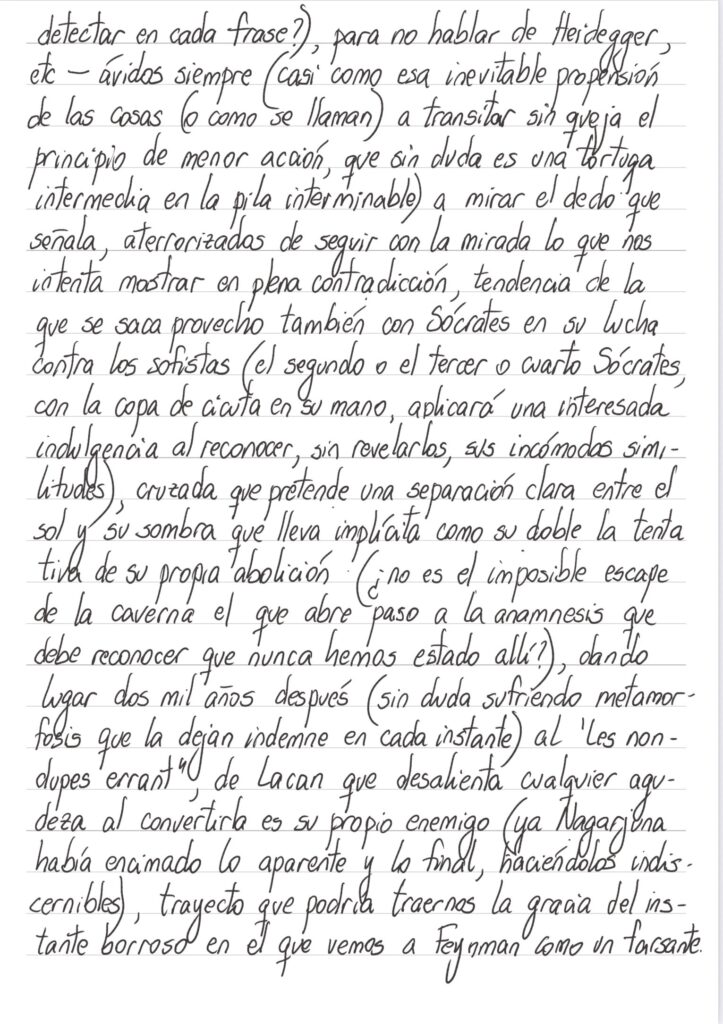 detectar en cada frase?), para no hablar de Heidegger,
etc – ávidos siempre (casi como esa inevitable propensión
de las cosas (o como se llaman) a transitar sin queja el
principio de menor acción, que sin duda es una tortuga
intermedia en la pila interminable) a mirar el dedo que
señala, aterrorizadas de seguir con la mirada lo que nos
intenta mostrar en plena contradicción, tendencia de la
que se saca provecho también con Sócrates en su lucha
contra los sofistas (el segundo o el tercer o cuarto Sócrates,
con la copa de cicuta en su mano, aplicará una interesada
indulgencia al reconocer, sin revelarlos, sus incómodas simi-
litudes), cruzada que pretende una separación clara entre el
sol y su sombra que lleva implícita como su doble la tenta
tiva de su propia abolición (¿no es el imposible escape
de la caverna el que abre paso a la anamnesis que
debe reconocer que nunca hemos estado allí?), dando
lugar dos mil años después (sin duda sufriendo metamor-
fosis que la dejan indemne en cada instante) al 'Les non-
dupes errant", de Lacan que desalienta cualquier agu-
deza al convertirla es su propio enemigo (ya Nagarjuna
había encimado lo aparente y lo final, haciéndolos indis-
cernibles), trayecto que podría traernos la gracia del ins-
tante borroso en el que vemos a Feynman como un farsante.